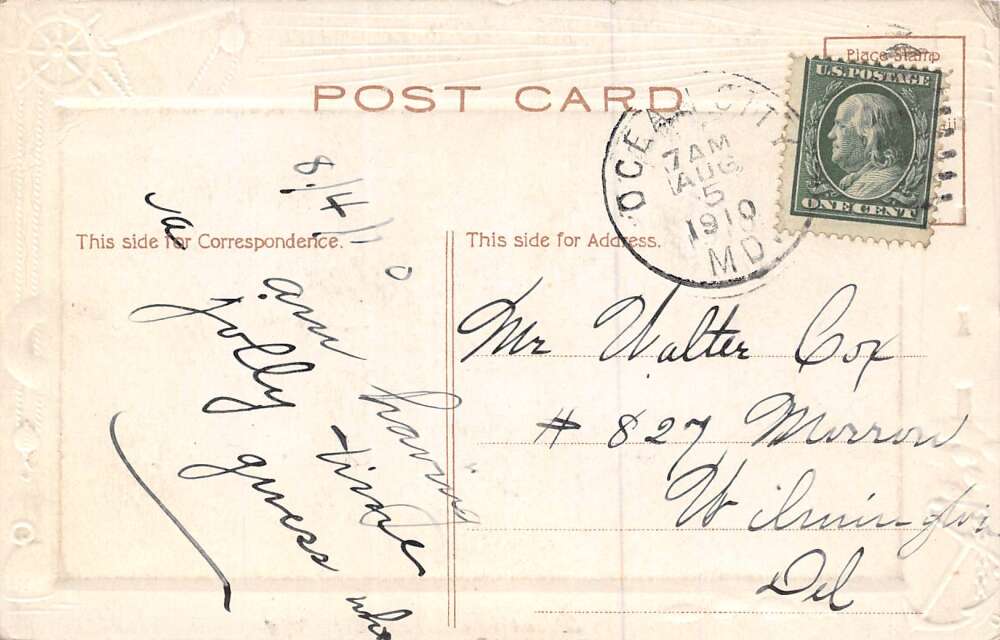 POST CARD
Place Stamp
U.S. POSTAGE
ONE CENT
OCEAN CITY
7 AM
AUG
5
1910
MD.
This side for Correspondence.
This side for Address.
8/4/10
am having
a jolly time
guess who
Mr Walter Cox
# 827 Morrow
Wilmington
Del